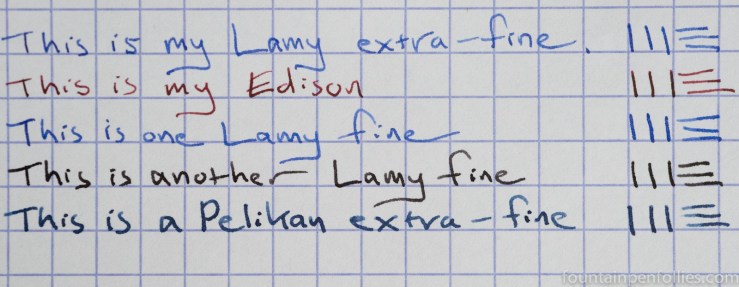 This is my Lamy extra-fine.
This is my Edison
This is one Lamy fine
This is another Lamy fine
This is a Pelikan extra-fine
fountainpenfollies.com